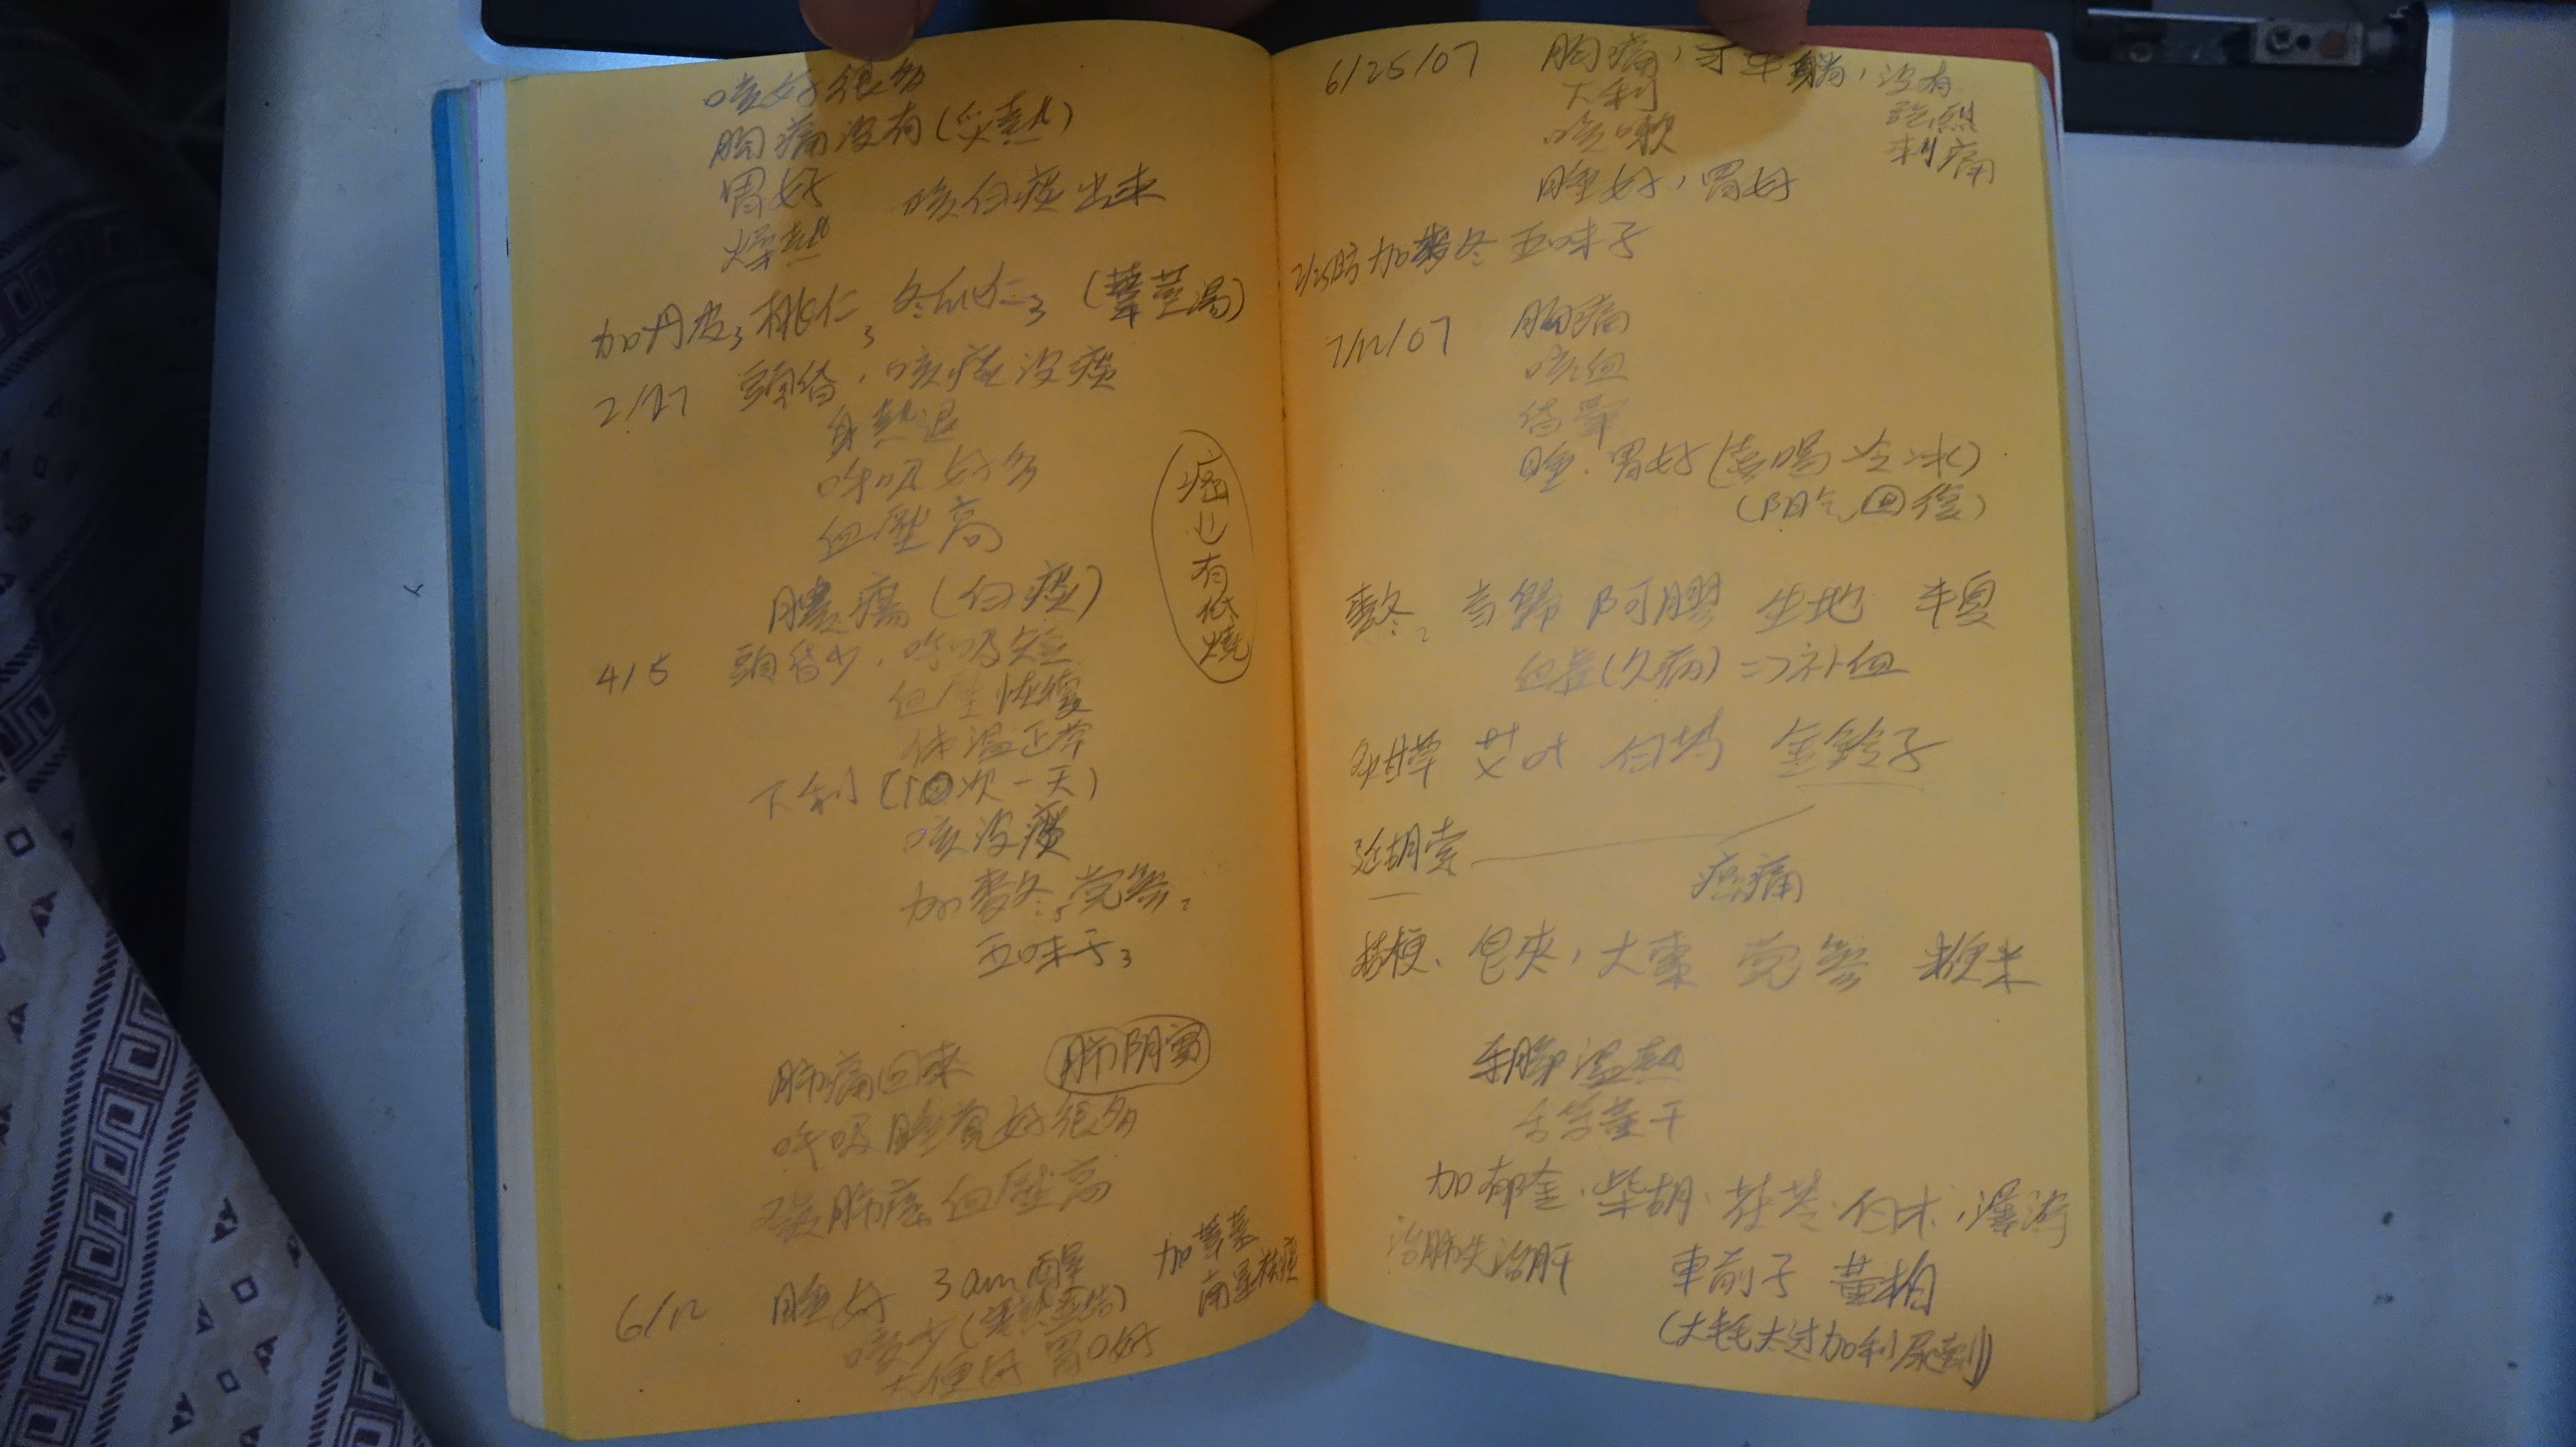 咳好很多
胸痛沒有(炙熱)
胃好 咳白痰出來
燥熱
加丹皮3 桃仁3 冬瓜仁3 (葦莖湯)
2/27 頭昏，咳痰沒痰
身熱退
呼吸好多
血壓高
膿瘍(白痰)
癌也有低燒
4/5 頭昏少，呼吸短
血壓恢復
体溫正常
下利(10次一天)
咳沒痰
加麥冬5 党參2
五味子3
肺痛回來 肺阴實
呼吸睡覺好很多
肺癌血壓高
6/12 睡好 3am醒 加葶藶
咳少 南星祛痰
大便好 胃口好
6/25/07 胸痛，沒有
強烈
刺痛
下利
咳嗽
睡好，胃好
加麥冬 五味子
7/12/07 胸痛
咳血
昏暈
睡．胃好(喜喝冷冰)
(阴气回復)
麥冬2 当歸 阿膠 生地 半夏
血虛(久病) => 补血
炙甘草 艾叶 白芍 金鈴子
延胡索
癌痛
桔梗、皂夾，大棗 党參 粳米
手腳溫熱
舌苔黃干
加郁金．柴胡．茯苓．白朮，澤瀉
治肺先治肝 車前子 黃柏
(大毛大过加利尿劑)